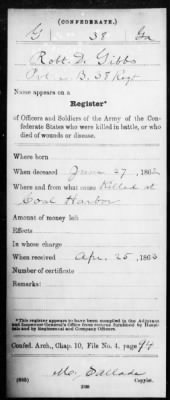 (CONFEDERATE.)
G 38 Ga
Robt. D. Gibbs
Pvt Co. B. 38 Regt
Name appears on a
Register*
of Officers and Soldiers of the Army of the Confederate States who were killed in battle, or who died of wounds or disease.
Where born
When deceased June 27, 1862
Where and from what cause Killed at
Coal Harbor
Amount of money left
Effects
In whose charge
When received Apr. 25, 1863
Number of certificate
Remarks:
*This register appears to have been compiled in the Adjutant and Inspector General's Office from returns furnished by Hospitals and by Regimental and Company Officers.
Confed. Arch., Chap. 10, File No. 4, page 94
Copyist.